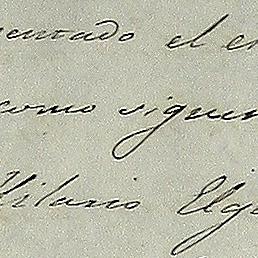 entado el en
como siguen
Hilario Elg